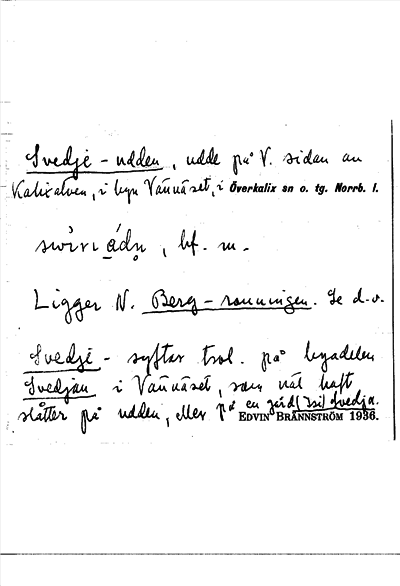 Svedje-udden, udde på V. sidan av
Kalixälven, i byn Vännäset, i Överkalix sn o. tg. Norrb. l.
bf. m.
Ligger N. Berg-ronningen. Se d.o.
Svedje- syftar trol. på byadelen
Svedjan i Vännäset, som väl haft
slåtter på udden, eller på en gård Svedja.
EDVIN BRÄNNSTRÖM 1936.